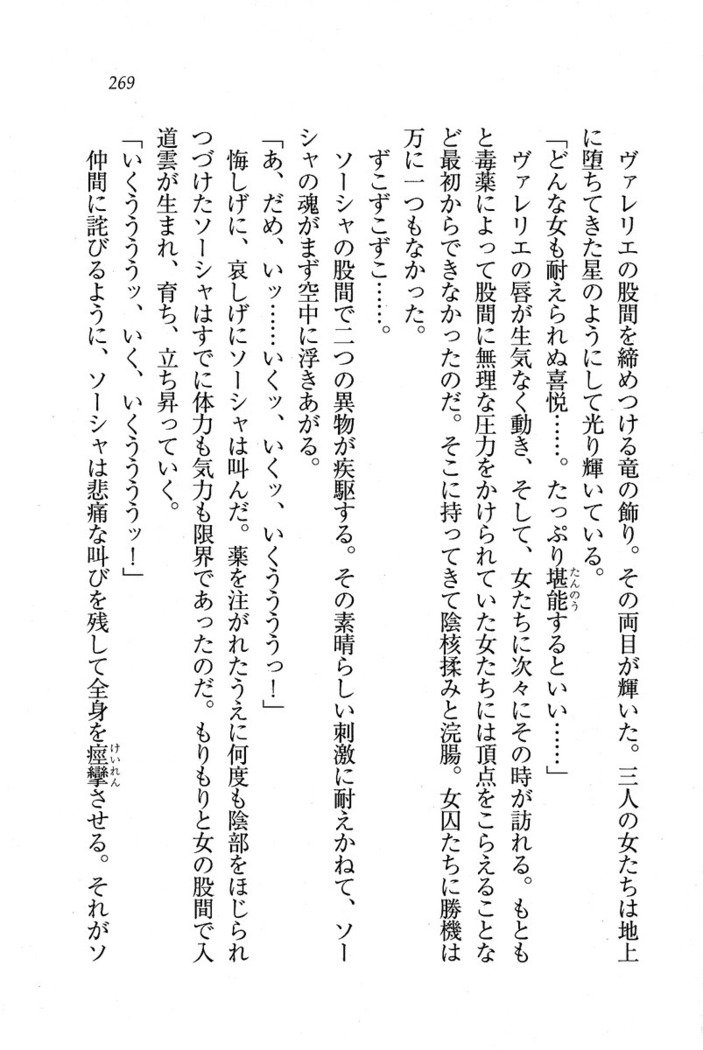 269
ヴァレリエの股間を締めつける竜の飾り。その両目が輝いた。三人の女たちは地上
に堕ちてきた星のようにして光り輝いている。
「どんな女も耐えられぬ喜悦……。たっぷり堪能するといい……」
たんのう
ヴァレリエの唇が生気なく動き、そして、女たちに次々にその時が訪れる。もとも
と毒薬によって股間に無理な圧力をかけられていた女たちには頂点をこらえることな
ど最初からできなかったのだ。そこに持ってきて陰核揉みと浣腸。女囚たちに勝機は
万に一つもなかった。
ずこずこずこ……。
ソーシャの股間で二つの異物が疾駆する。その素晴らしい刺激に耐えかねて、ソー
シャの魂がまず空中に浮きあがる。
「あ、だめ、いッ……いくッ、いくッ、いくううううっ！」
悔しげに、哀しげにソーシャは叫んだ。薬を注がれたうえに何度も陰部をほじられ
つづけたソーシャはすでに体力も気力も限界であったのだ。もりもりと女の股間で入
道雲が生まれ、育ち、立ち昇っていく。
「いくううううッ、いく、いくううううッ！」
仲間に詫びるように、ソーシャは悲痛な叫びを残して全身を痙攣させる。それがソ
けいれん